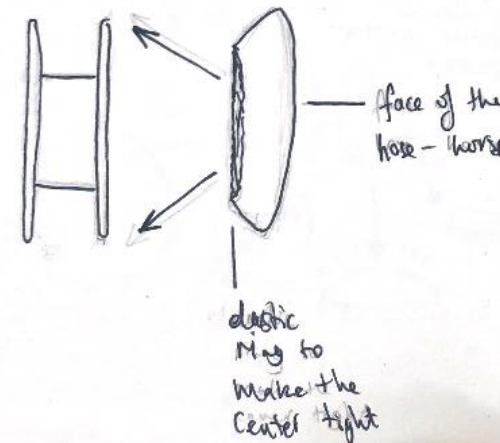 face of the
hose - horse
elastic
ring to
make the
center tight